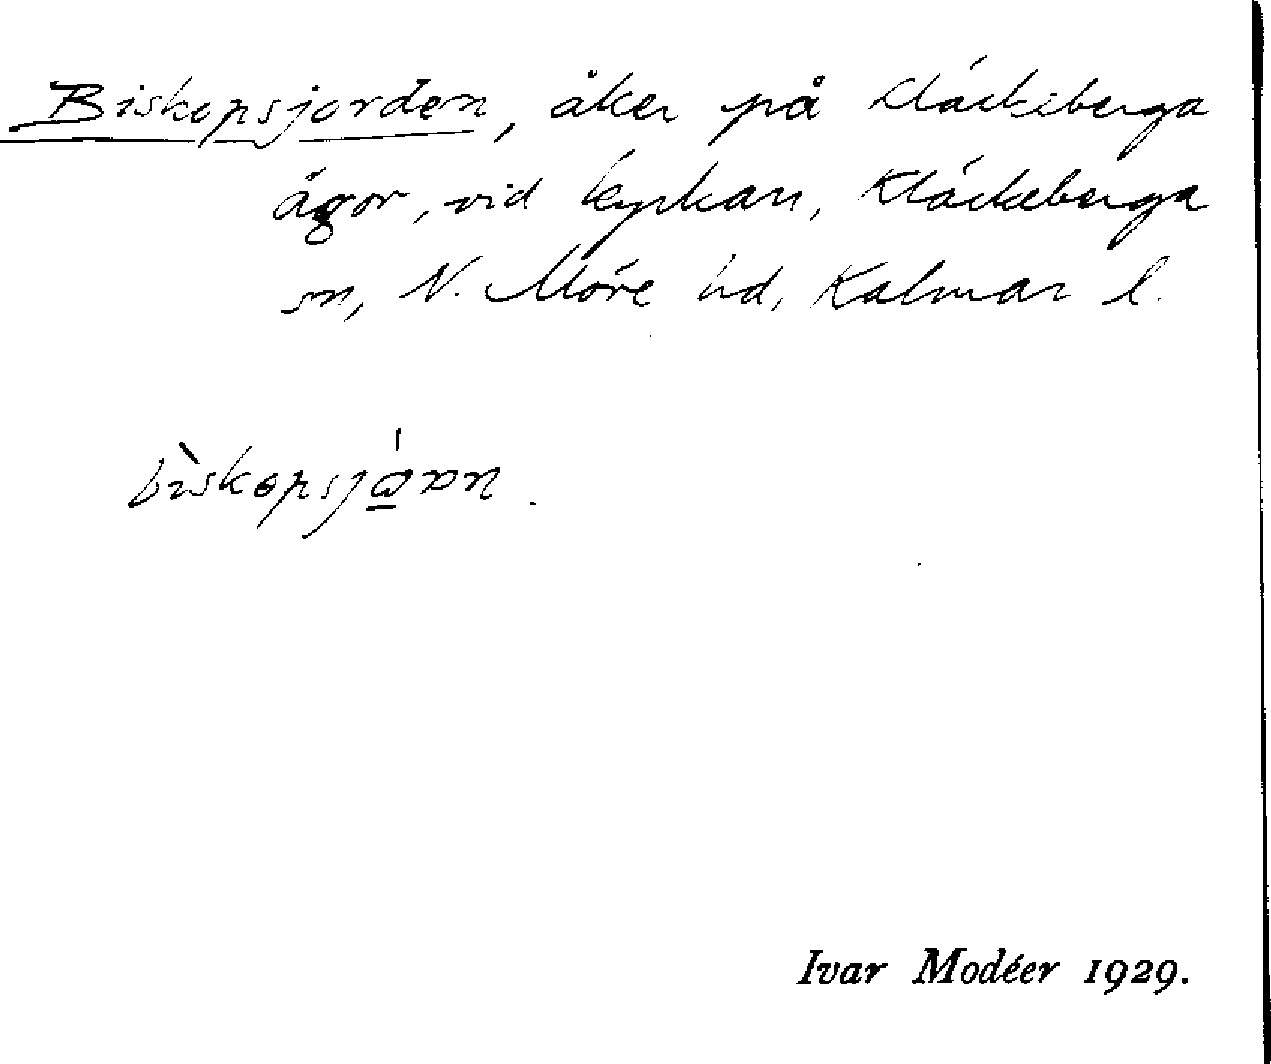 Biskopsjorden, åker på Kläckeberga
ägor, vid kyrkan, Kläckeberga
sn, N. Möre hd, Kalmar l.
Ivar Modéer 1929.